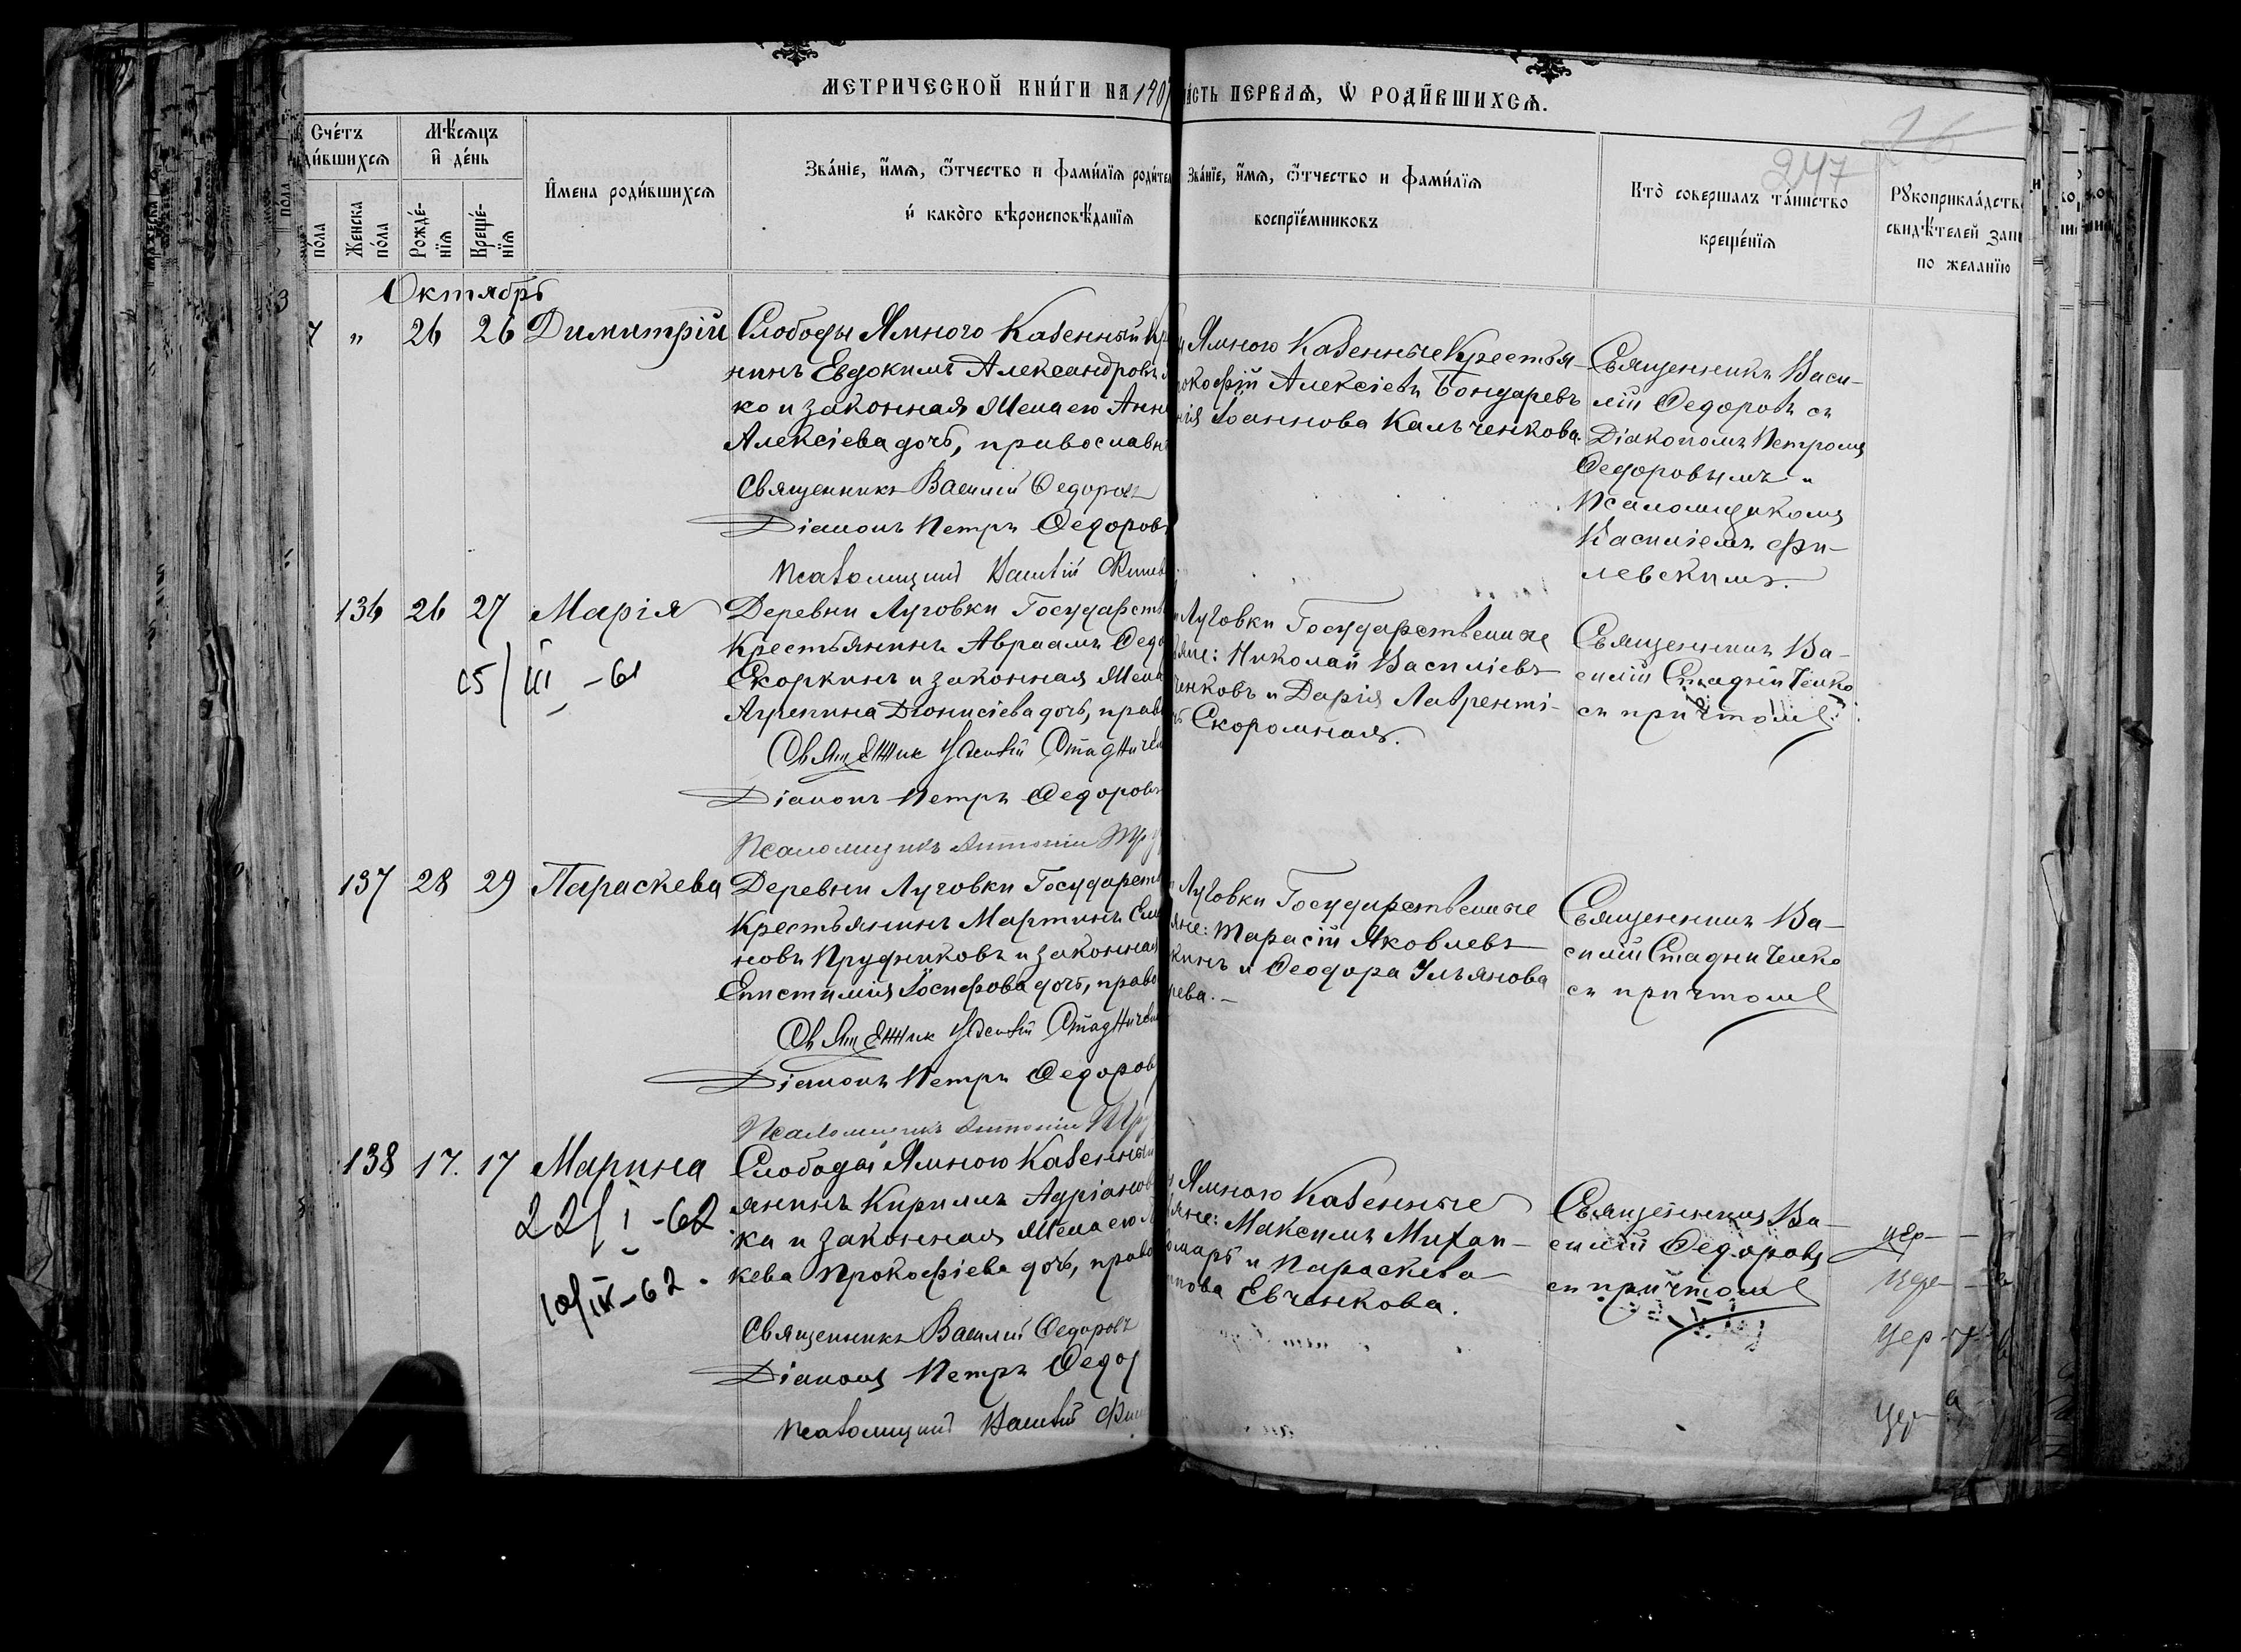 МЕТРИЧЕСКОЙ КНИ́ГИ НА 1907
ЧА́СТЬ ПЕРВАѦ, Ѡ РОДИ́ВШИХСѦ.
247
Сче́тъ
ди́вшихсѧ
Мѣ́сѧцъ
и҆ де́нь
И҆́мена роди́вшихсѧ
Зва́нїе, и҆́мѧ, ѻ҆́тчество и фами́лїѧ роди́тел
и҆ како́го вѣроисповѣ́данїѧ
Зва́нїе, и҆́мѧ, ѻ҆́тчество и фами́лїѧ
воспрїе́мниковъ
Кто̀ совершалъ та́инство
креще́нїѧ
Рꙋкоприкла́дств
свидѣ́телей зап
по жела́нїю
по́ла
Женска
по́ла
Рожде́-
нїѧ
Креще́-
нїѧ
Октябрь
7 " 26 26 Димитрій
Слободы Ямного Казенный Кр
нинъ Евдокимъ Александровъ
ко и законная жена его Анн
Алексіева дочь, православн
Священникъ Василій Федоровъ
Діаконъ Петръ Федоровъ
Псаломщикъ Василій
Ямного Казенные Крестья-
рокофій Алексіевъ Бондаревъ
нія Іоаннова Кальченкова.
Священникъ Васи-
лій Федоровъ съ
Діакономъ Петромъ
Федоровымъ и
Псаломщикомъ
Василіемъ Фи-
левскимъ.
136 26 27 Марія
15/III-61
Деревни Луговки Государств
Крестьянинъ Авраамъ Федо
Скоркинъ и законная жена
Агрепина Діонисіева дочь, прав
Священник Василій Стадниче
Діаконъ Петръ Федоровъ
Псаломщикъ Антоній Тру
Луговки Государственные
яне: Николай Василіевъ
ченковъ и Дарія Лавренті-
Скоромная.
Священникъ Ва-
силій Стадниченко
съ причтомъ
137 28 29 Параскева
Деревни Луговки Государств
Крестьянинъ Мартинъ Сим
новъ Прудниковъ и законная
Епистимія Іосифова дочь, право
Священник Василій Стадничен
Діаконъ Петръ Федоров
Псаломщикъ Антоній Тру
Луговки Государственные
яне: Тарасій Яковлевъ
кинъ и Феодора Ульянова
рева.
Священникъ Ва-
силій Стадниченко
съ причтомъ
138 17. 17 Марина
22/I-62
10/IX-62.
Слободы Ямного Казенный
янинъ Кириллъ Адріанов
ка и законная жена его
кева Прокофіева дочь, право
Священникъ Василій Федоровъ
Діаконъ Петръ Федор
Псаломщикъ Василій
Ямного Казенные
яне: Максимъ Михаи-
омарь и Параскева
пова Евченкова.
Священникъ Ва-
силій Федоровъ
съ причтомъ